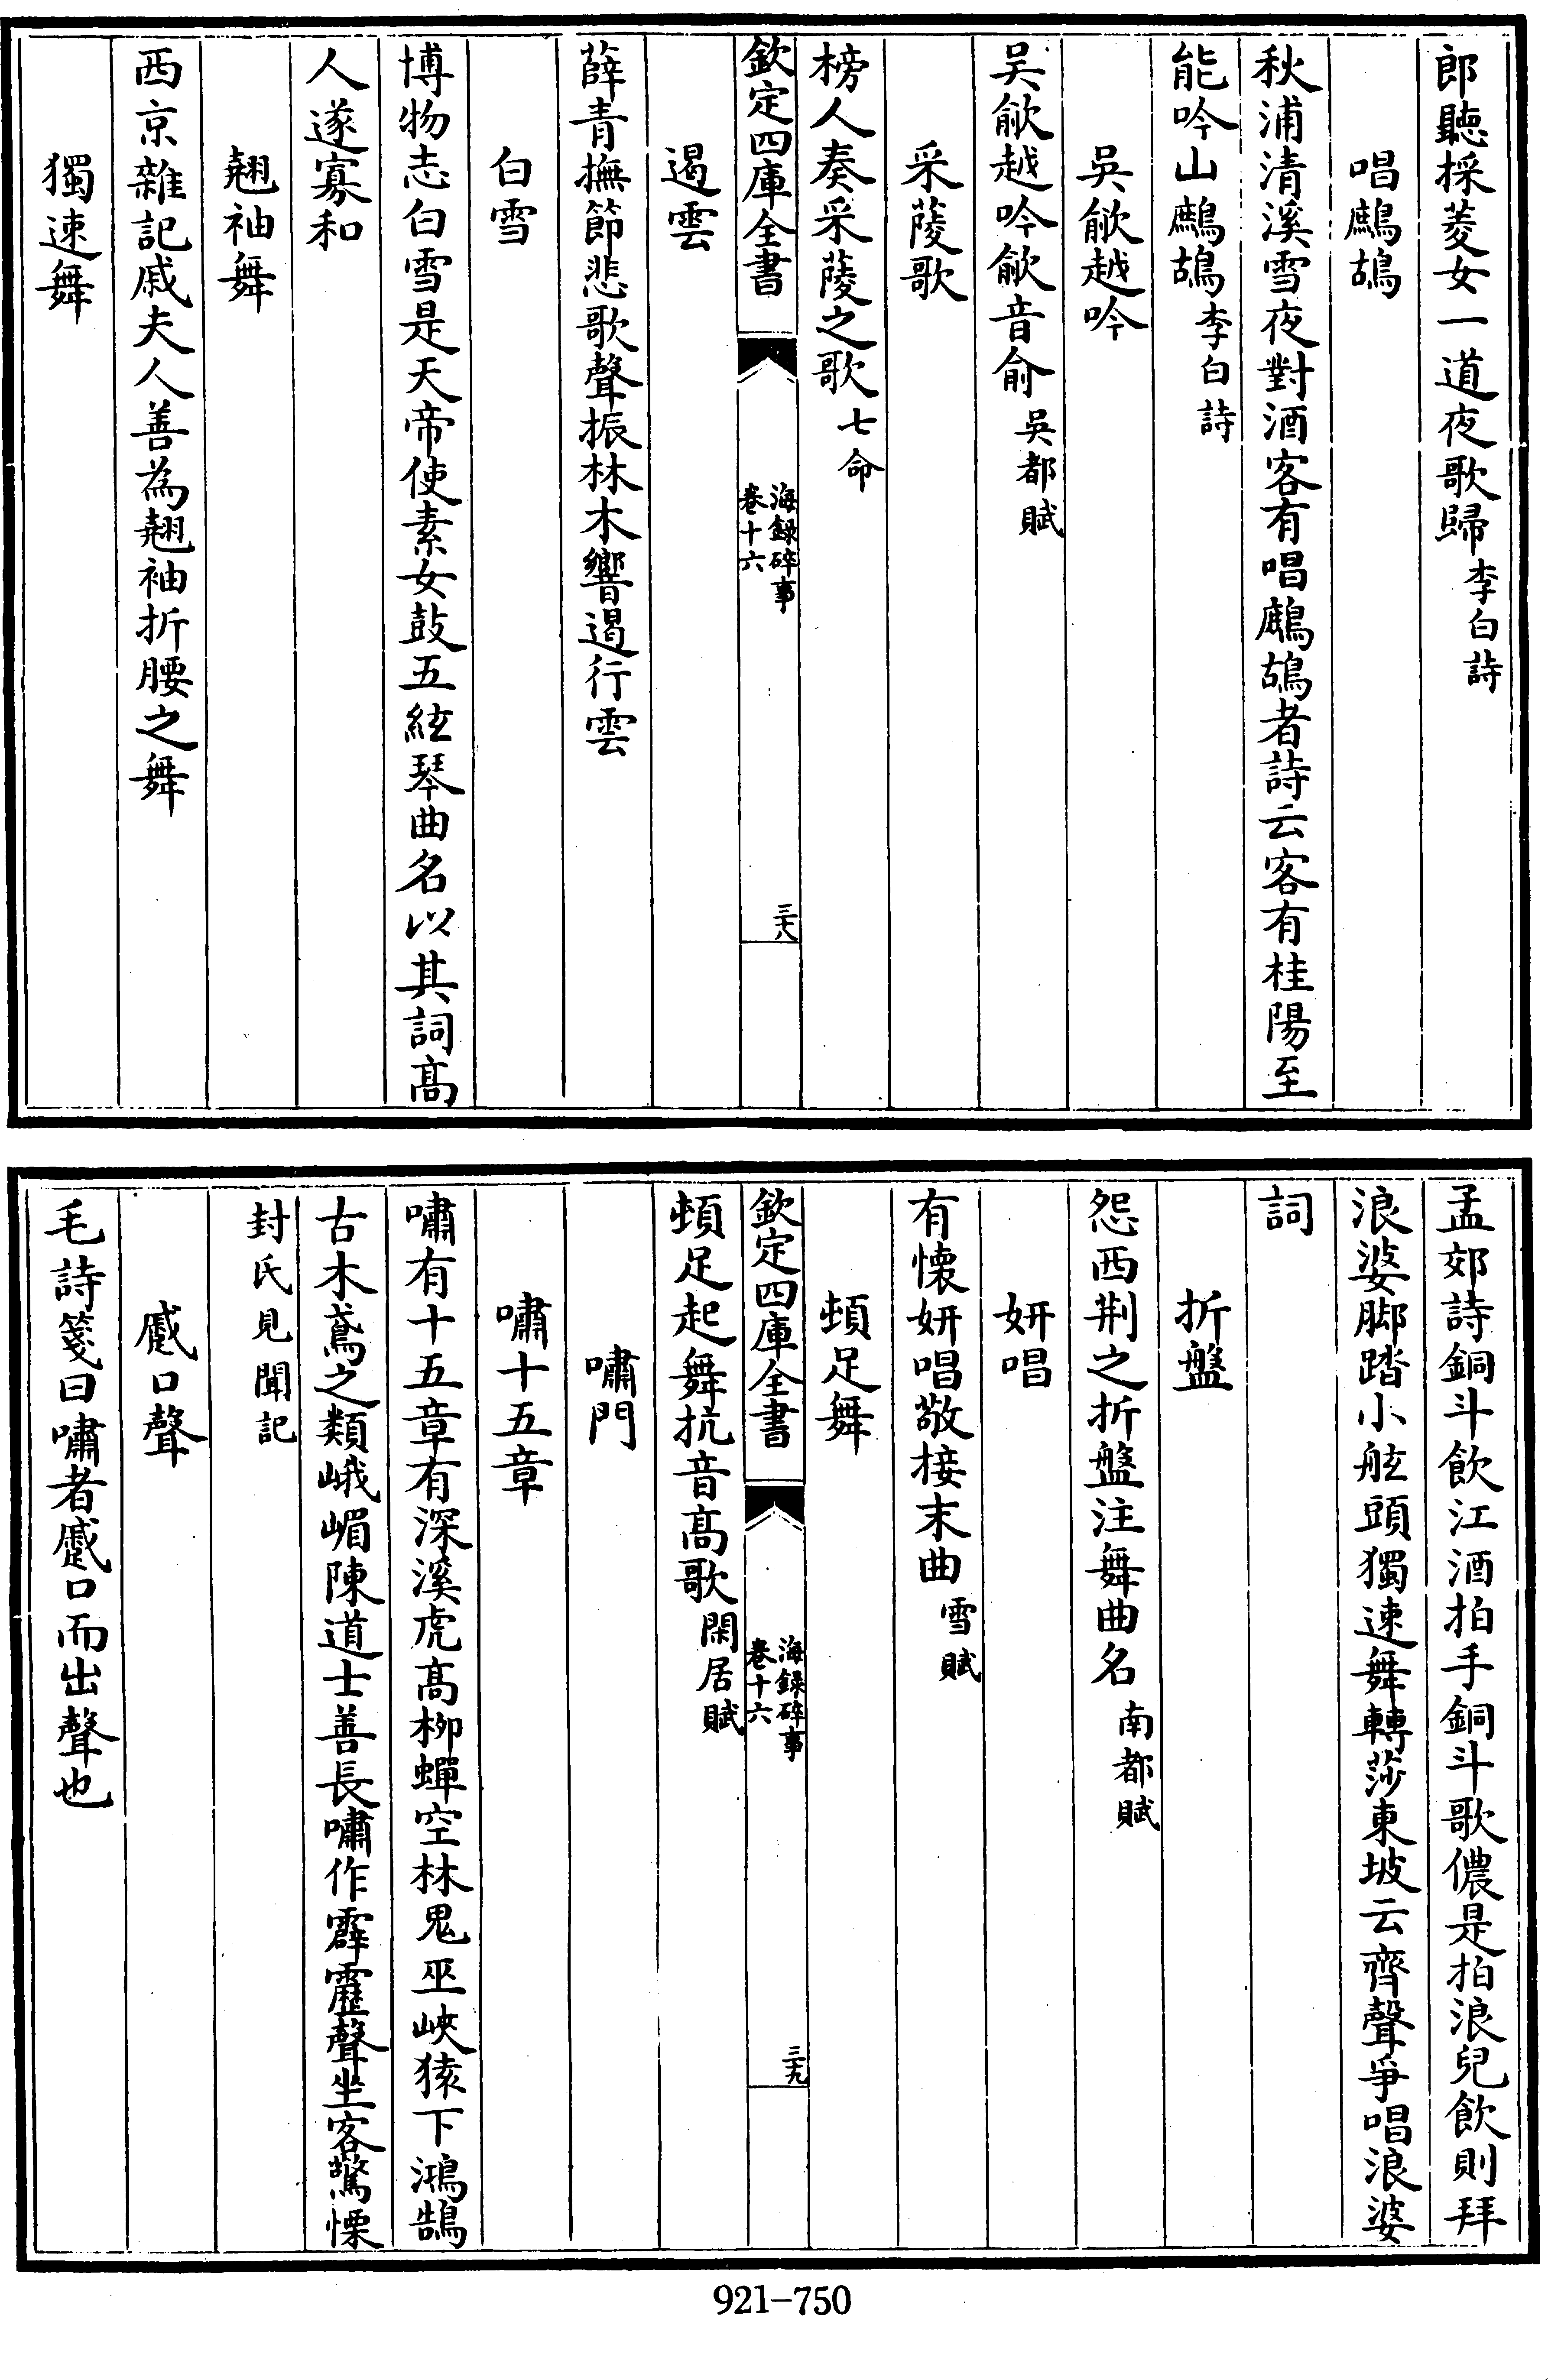 郎聽採菱女一道夜歌歸李白詩
唱鷓鴣
秋浦清溪雪夜對酒客有唱鷓鴣者詩云客有桂陽至
能吟山鷓鴣李白詩
吳歈越吟
吴歈越吟歈音俞吳都賦
采蔆歌
榜人奏采蔆之歌七命
欽定四庫全書
海錄碎事
卷十六
三十八
遏雲
薛青撫節悲歌聲振林木響遏行雲
白雪
博物志白雪是天帝使素女鼓五絃琴曲名以其詞髙
人遂寡和
翹袖舞
西京雜記戚夫人善為翹袖折腰之舞
獨速舞
孟郊詩銅斗飲江酒拍手銅斗歌儂是拍浪兒飲則拜
浪婆脚踏小舷頭獨速舞轉莎東坡云齊聲爭唱浪婆
詞
折盤
怨西荆之折盤注舞曲名南都賦
妍唱
有懐妍唱敬接末曲雪賦
頓足舞
欽定四庫全書
海錄碎事
卷十六
三十九
頓足起舞抗音髙歌閑居賦
嘯門
嘯十五章
嘯有十五章有深溪虎髙柳蟬空林鬼巫峽猿下鴻鵠
古木鳶之類峨嵋陳道士善長嘯作霹靂聲坐客驚慄
封氏見聞記
蹙口聲
毛詩箋曰嘯者蹙口而出聲也
921-750